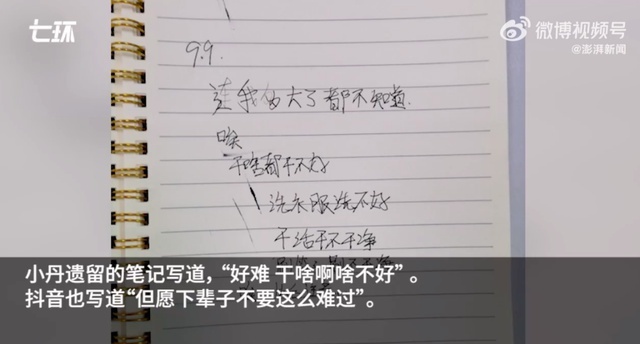 七环
微博视频号
@澎湃新闻
9.9.
连我多大了都不知道.
唉
干啥都干不好
洗衣服洗不好
干活干不干净
小丹遗留的笔记写道，“好难 干啥啊啥不好”。
抖音也写道“但愿下辈子不要这么难过”。